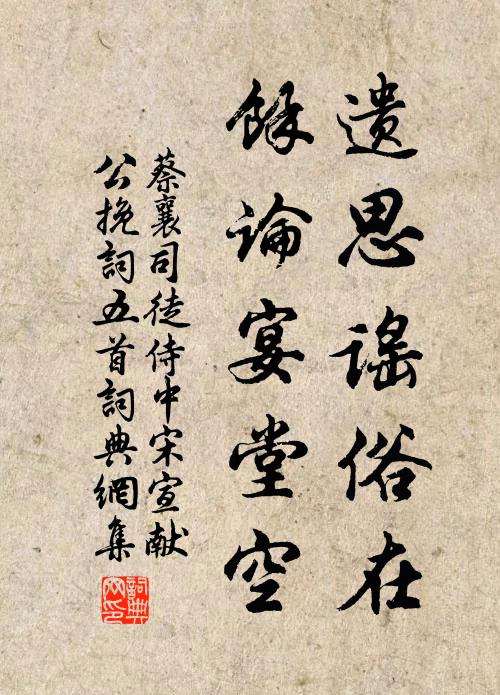 遗思谣俗在
馀论宴堂空
蔡襄司徒侍中宋宣献
公挽詞五首詞典網集
詞典
网印